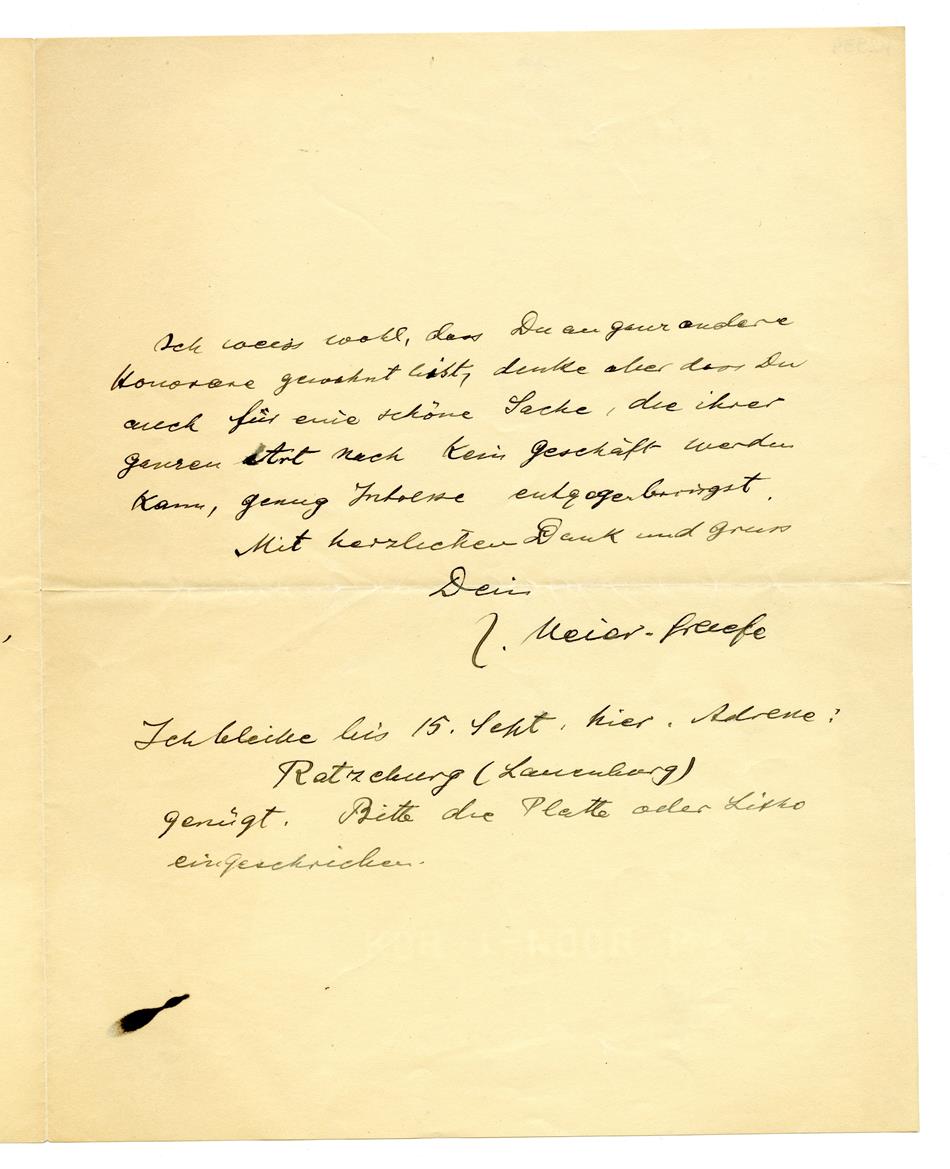 Ich weiss wohl, dass Du an ganz andere
Honorare gewohnt bist, denke aber dass Du
auch für eine schöne Sache, die ihrer
ganzen Art nach kein Geschäft werden
kann, genug Interesse entgegenbringst.
Mit herzlichen Dank und Gruss
Dein
J. Meier-Graefe
Ich bleibe bis 15. Sept. hier. Adresse:
Ratzeburg (Lauenburg)
genügt. Bitte die Platte oder Litho
eingeschrieben.